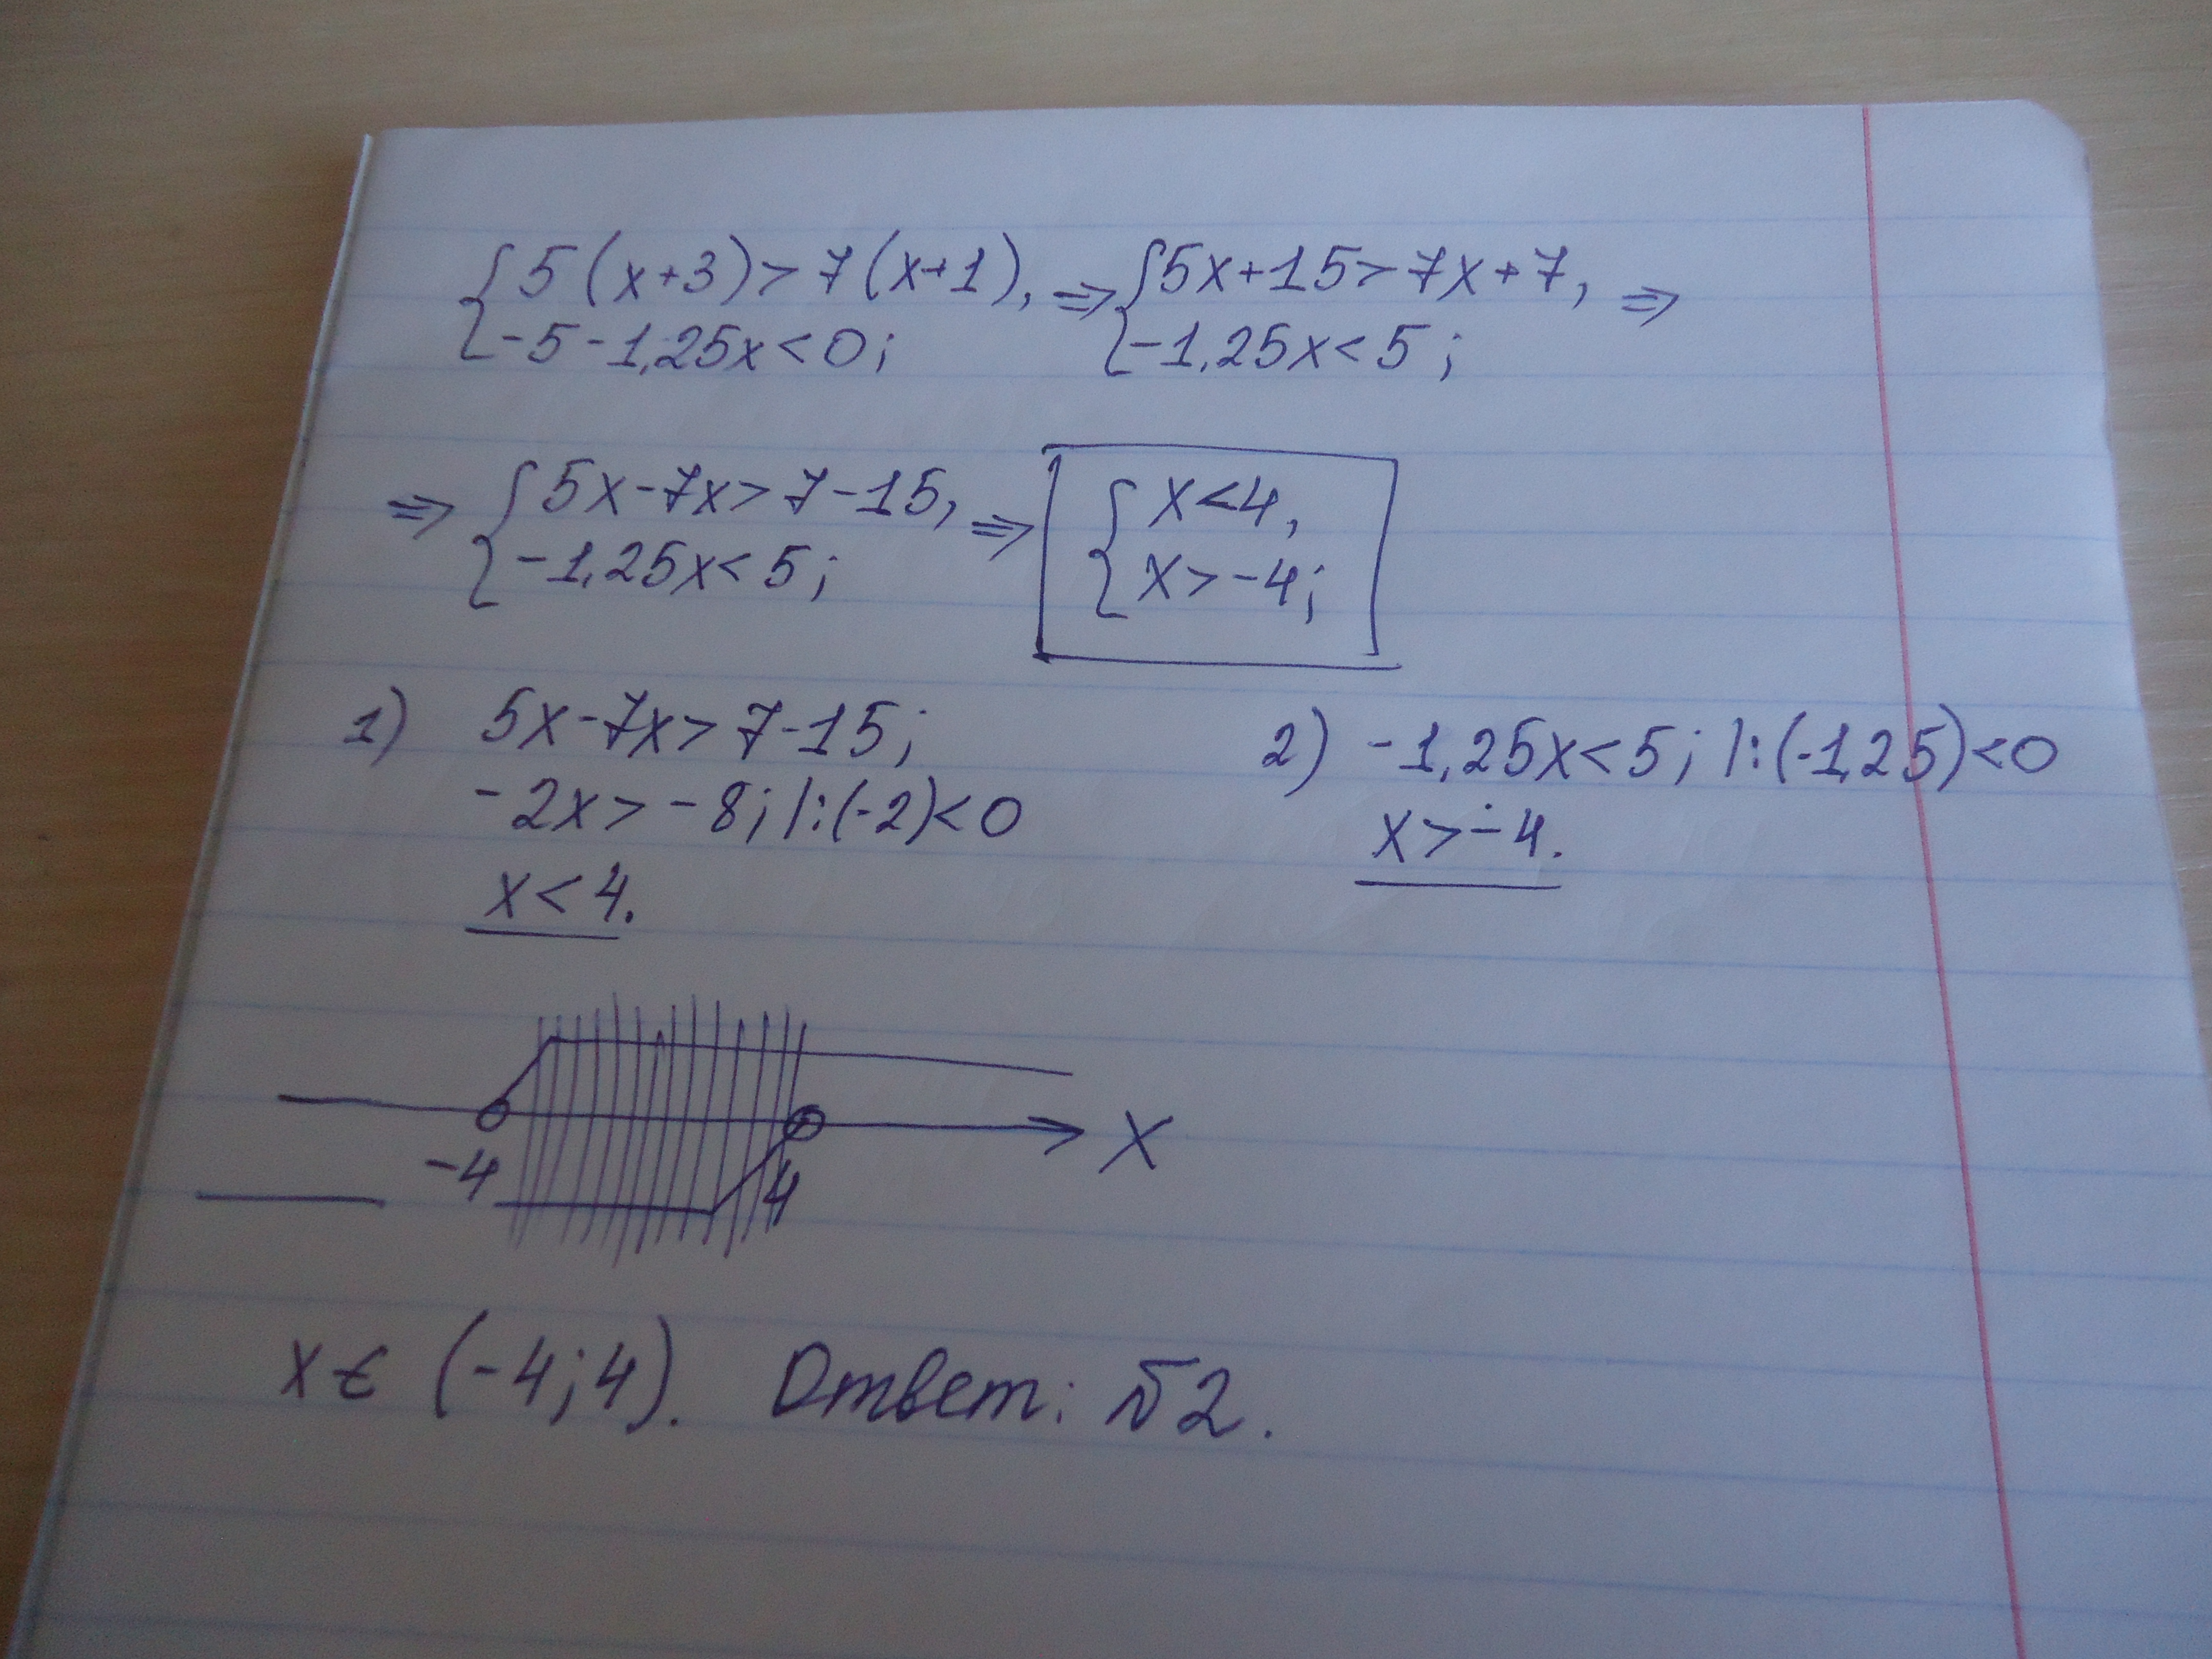 { 5(x+3)>7(x+1), => { 5x+15>7x+7, =>
-5-1,25x<0; -1,25x<5;
=> { 5x-7x>7-15, => { x<4,
-1,25x<5; x>-4;
1) 5x-7x>7-15;
-2x>-8; |:(-2)<0
x<4.
2) -1,25x<5; |:(-1,25)<0
x>-4.
-4 4 X
x∈(-4;4). Ответ: №2.